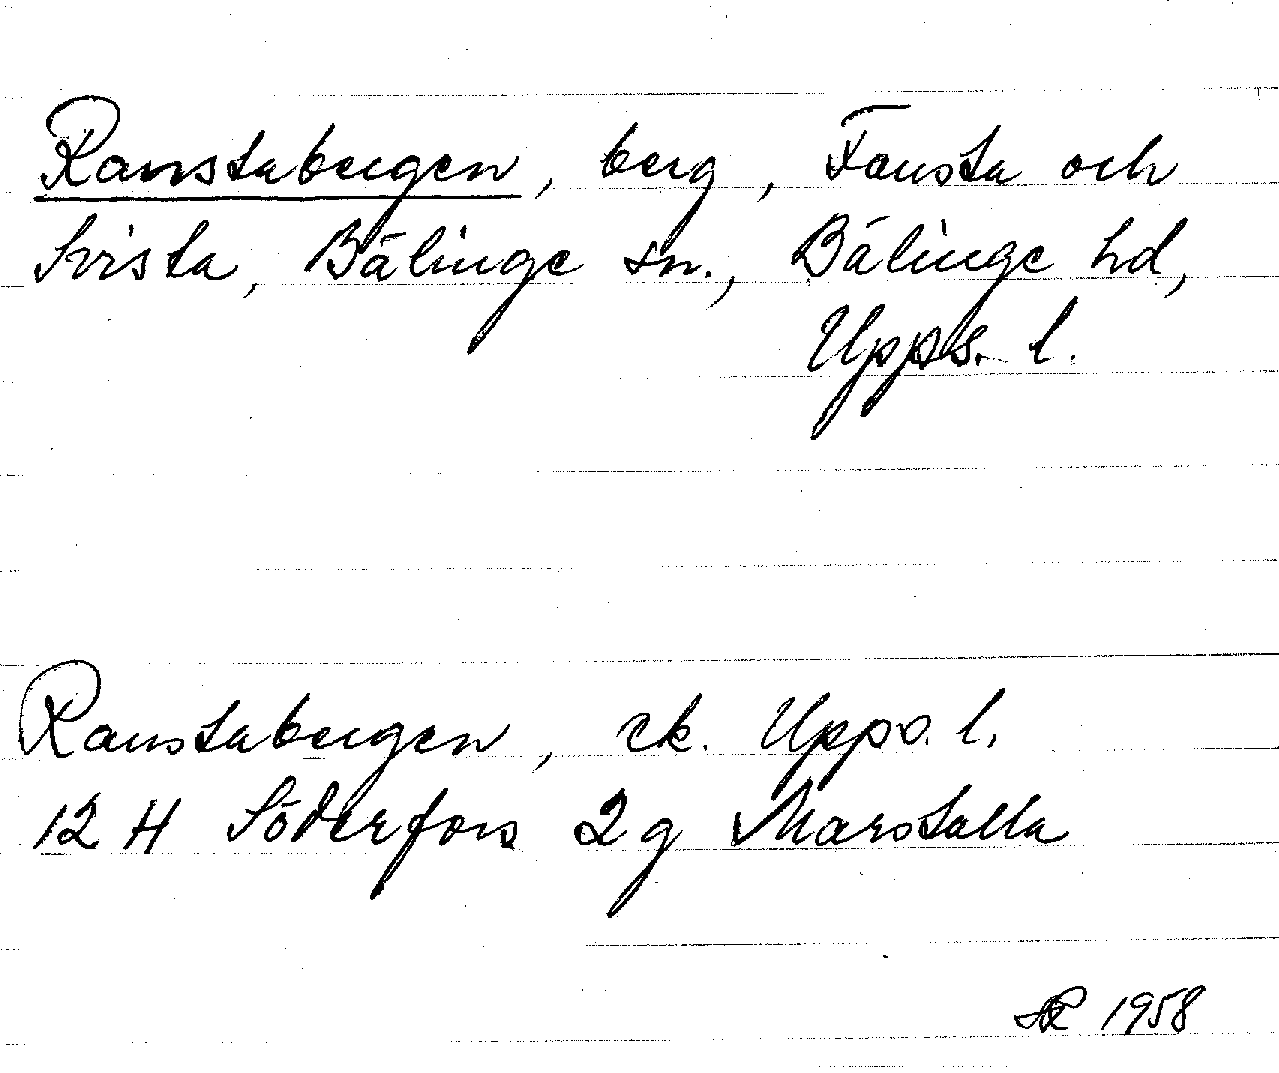 Ranstabergen, berg, Fansta och
Svista, Bälinge sn., Bälinge hd,
Upps. l.
Ranstabergen, ek. Upps. l.
12 H Söderfors 2 g Marstalla
1958